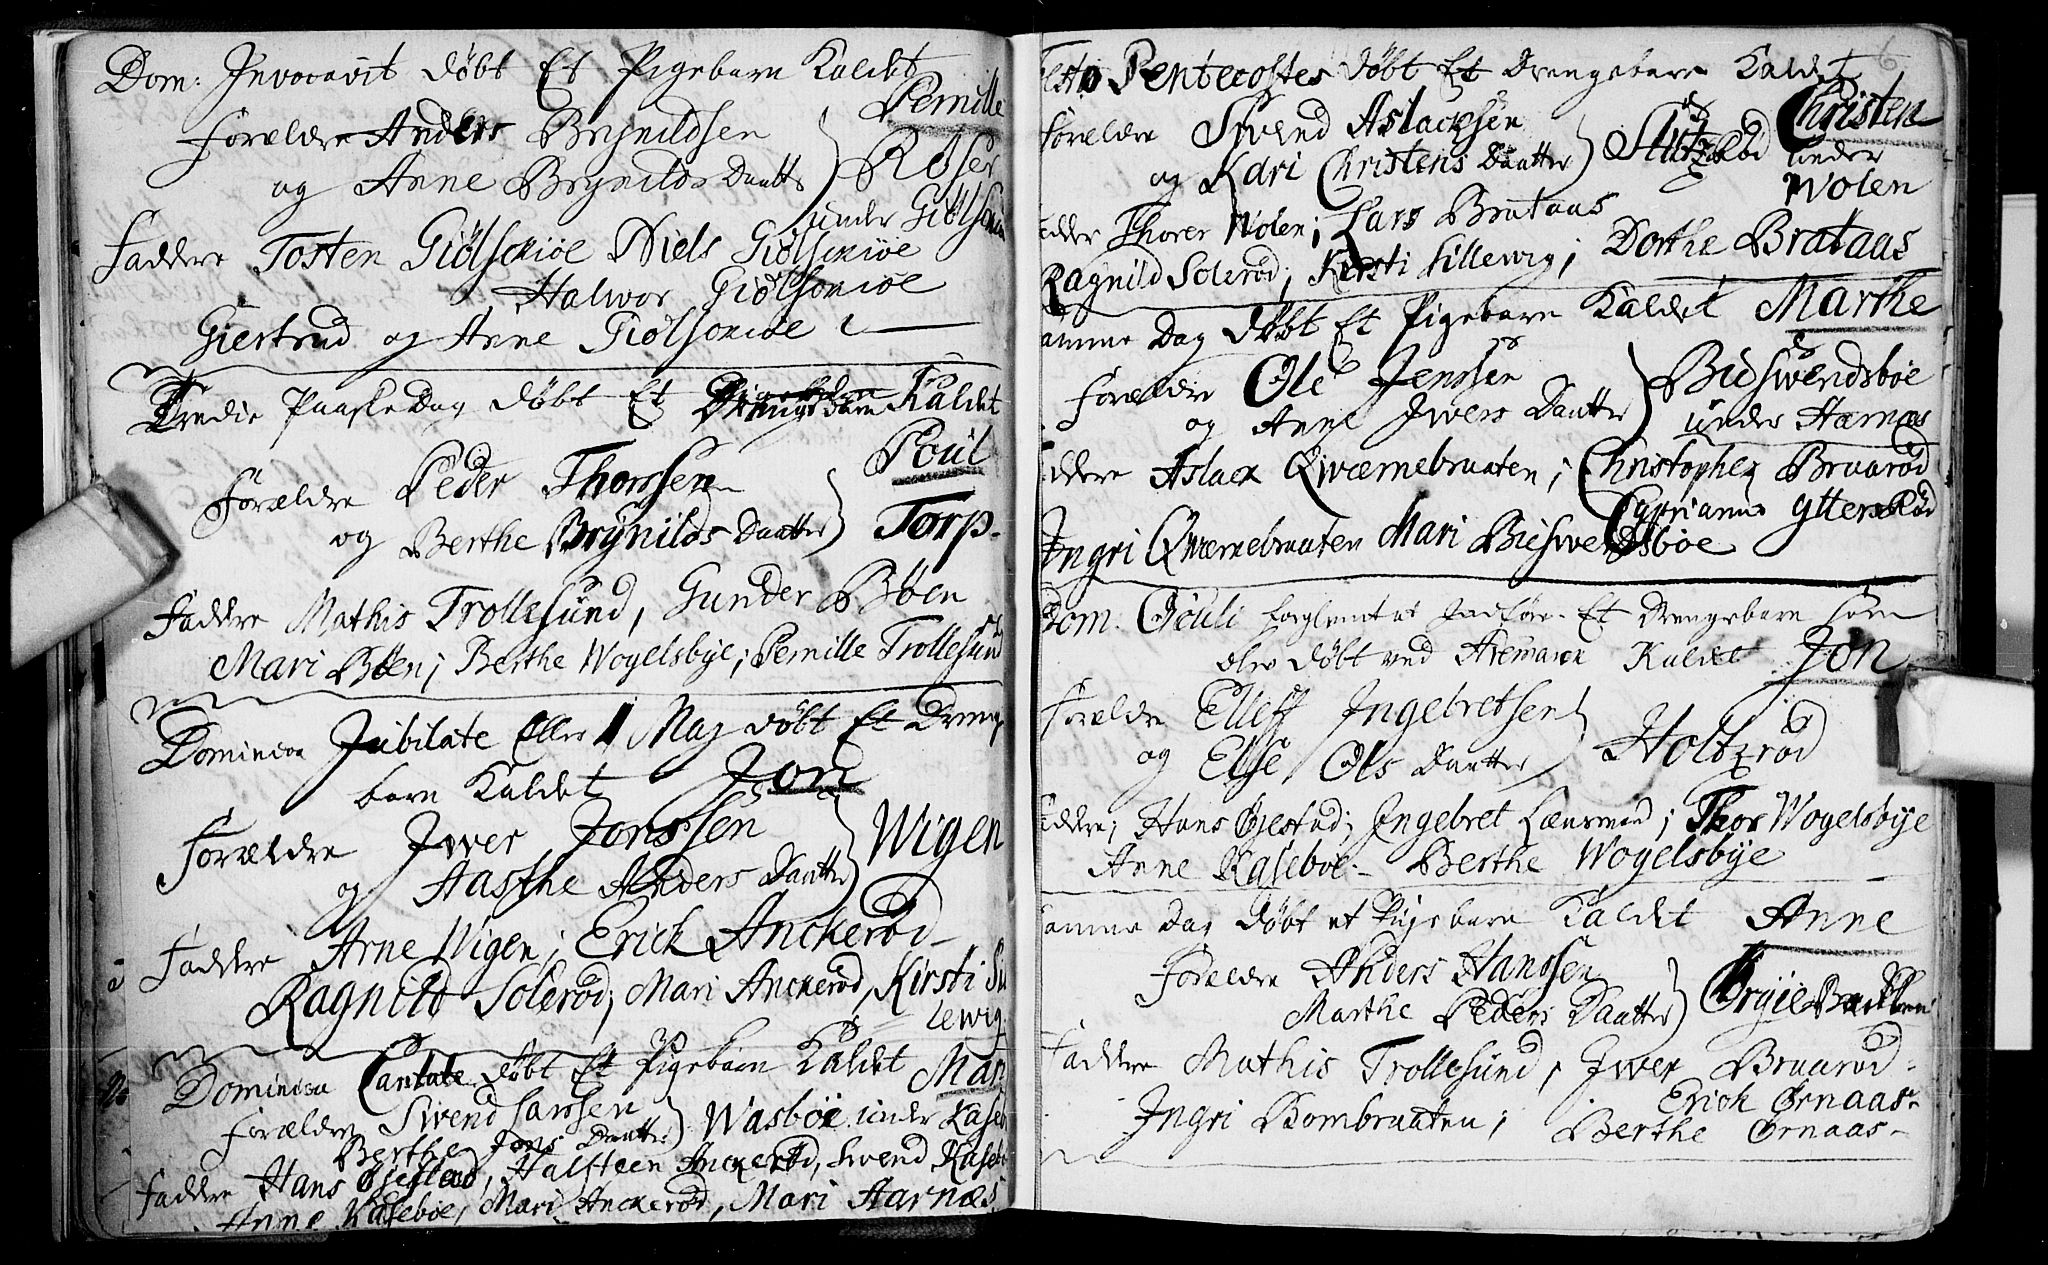 Dom: Invocavit døbt Et Pigebarn Kaldet
Pernille
Forældre Anders Brynildsen
og Anne Brynilds Daatt
Røser
under Giølsøe
Faddere Tosten Giølsøe Niels Giølsøe
Halwor Giølsøe
Giertrud og Anne Giølsøe
Tredie Paaske Dag døbt Et Drengebarn Kaldet
Poul
Forældre Peder Thorssen
og Berthe Brynilds Daatter
Torp.
Faddere Mathis Trollesund, Gunder Bøen
Mari Bøen; Berthe Wogelsbye; Pernille Trollesund
Dominica Jubilate Eller 1 Maj døbt Et Drenge
barn Kaldet Jon
Forældre Iwer Jonssen
og Aasthe Anders Daatter
Wigen
Faddere Arne Wigen; Erich Anckerød
Ragnild Solerød; Mari Anckerød, Kirsti
lewig.
Dominica Cantate døbt Et Pigebarn Kaldet Mar
Forældre Swend Larssen
Berthe Jons Daatter
Wasbøe under Kaseb
Faddere Hans Øjestad, Halsteen Anckerød, Swend Kaseb
Anne Kasebøe, Mari Anckerød, Mari Aarnæs
6
Festo Pentecostes døbt Et Drengebarn Kaldet
Christen
Forældre Swend Aslacksen
og Kari Christens Daatter
Slutzrød under
Wolen
adder Thorer Wolen; Lars Brataas
Ragnild Solerød; Kirsti Lillewig; Dorthe Brataas
amme Dag døbt Et Pigebarn Kaldet Marthe
Forældre Ole Jenssen
og Anne Iwers Daatter
Biswendsbøe
under Harnæs
addere Aslack Qwærnebraaten; Christopher Braarød
Cyprianus Ytterrød
Ingri Qwærnebraaten Mari Biswendsbøe
Dom. Oculi forglemt at Indføre Et Drengebarn som
blev døbt ved Aremarck Kaldet Jon
Forældre Elleff Ingebretsen
og Else Ols Daatter
Holtzrød
addere; Hans Øjestad; Ingebret Lænsmand; Thor Wogelsbye
Anne Kasebøe - Berthe Wogelsbye
Samme Dag døbt et Pigebarn Kaldet Anne
Forældre Anders Hanssen
Marthe Peders Daatter
Ørgie Backken
Faddere Mathis Trollesund, Iwer Braarød
Erich Ørnaas
Ingri Bombraaten; Berthe Ørnaas